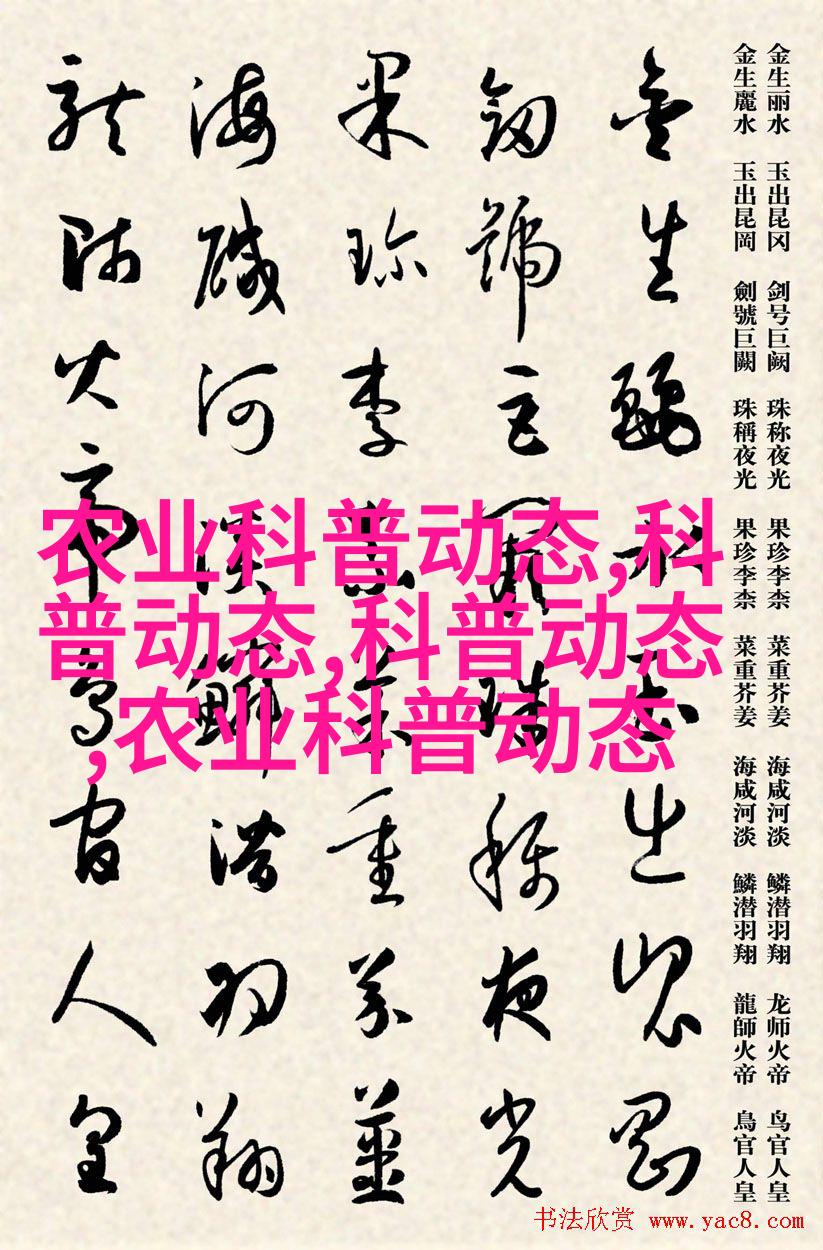 金生丽水 玉出昆冈 剑号巨阙 珠称夜光 果珍李柰 菜重芥姜 海咸河淡 鳞潜羽翔 龙师火帝 鸟官人皇
金生麗水 玉出昆岡 劍號巨闕 珠稱夜光 果珍李柰 菜重芥姜 海咸河淡 鱗潜羽翔 龍師火帝 鳥官人皇
金生麗水玉出崑岡
劍號巨闕珠稱夜光
果珍李柰菜重芥薑
海醎河淡鱗潜羽翔
龍師火帝鳥官人皇
农业科普动态,科
普动态,科普动态
,农业科普动态
书法欣赏 www.yac8.com